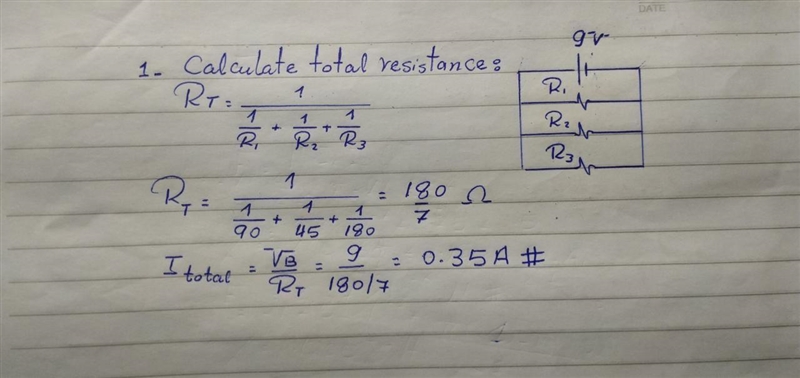 DATE
9v
1- Calculate total resistance:
R₁
R₂
R₃
R_T = 1 / (1/R₁ + 1/R₂ + 1/R₃)
R_T = 1 / (1/90 + 1/45 + 1/180) = 180/7 Ω
I_total = V_B/R_T = 9/(180/7) = 0.35A #